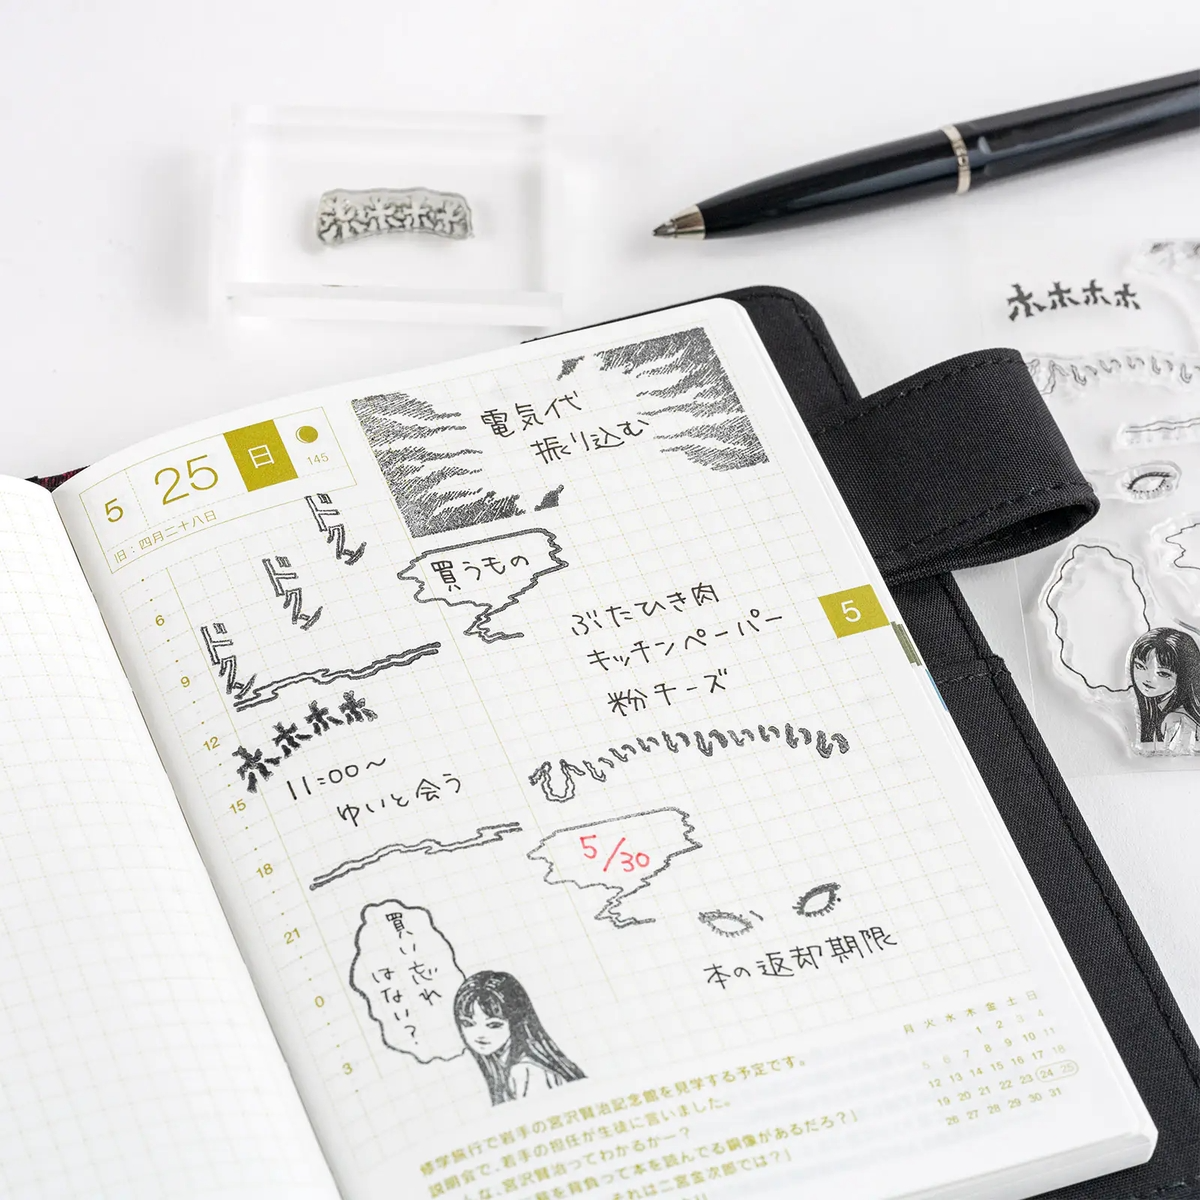 5
25
日
145
旧：四月二十八日
電気代
振り込む
ドクン
ドクン
ドクン
買うもの
ぶたひき肉
キッチンペーパー
粉チーズ
5
6
9
12
15
18
21
0
3
ホホホホ
11:00〜
ゆいと会う
ひぃぃぃぃぃぃぃぃぃ
5/30
本の返却期限
買い忘れ
はない？
月 火 水 木 金 土 日
1 2 3 4
5 6 7 8 9 10 11
12 13 14 15 16 17 18
19 20 21 22 23 24 25
26 27 28 29 30 31
修学旅行で岩手の宮沢賢治記念館を見学する予定です。
説明会で、岩手の担任が生徒に言いました。
んな、宮沢賢治ってわかるかー？
を背負って本を読んでる銅像があるだろ？」
それは二宮金次郎では？」
ホホホホ